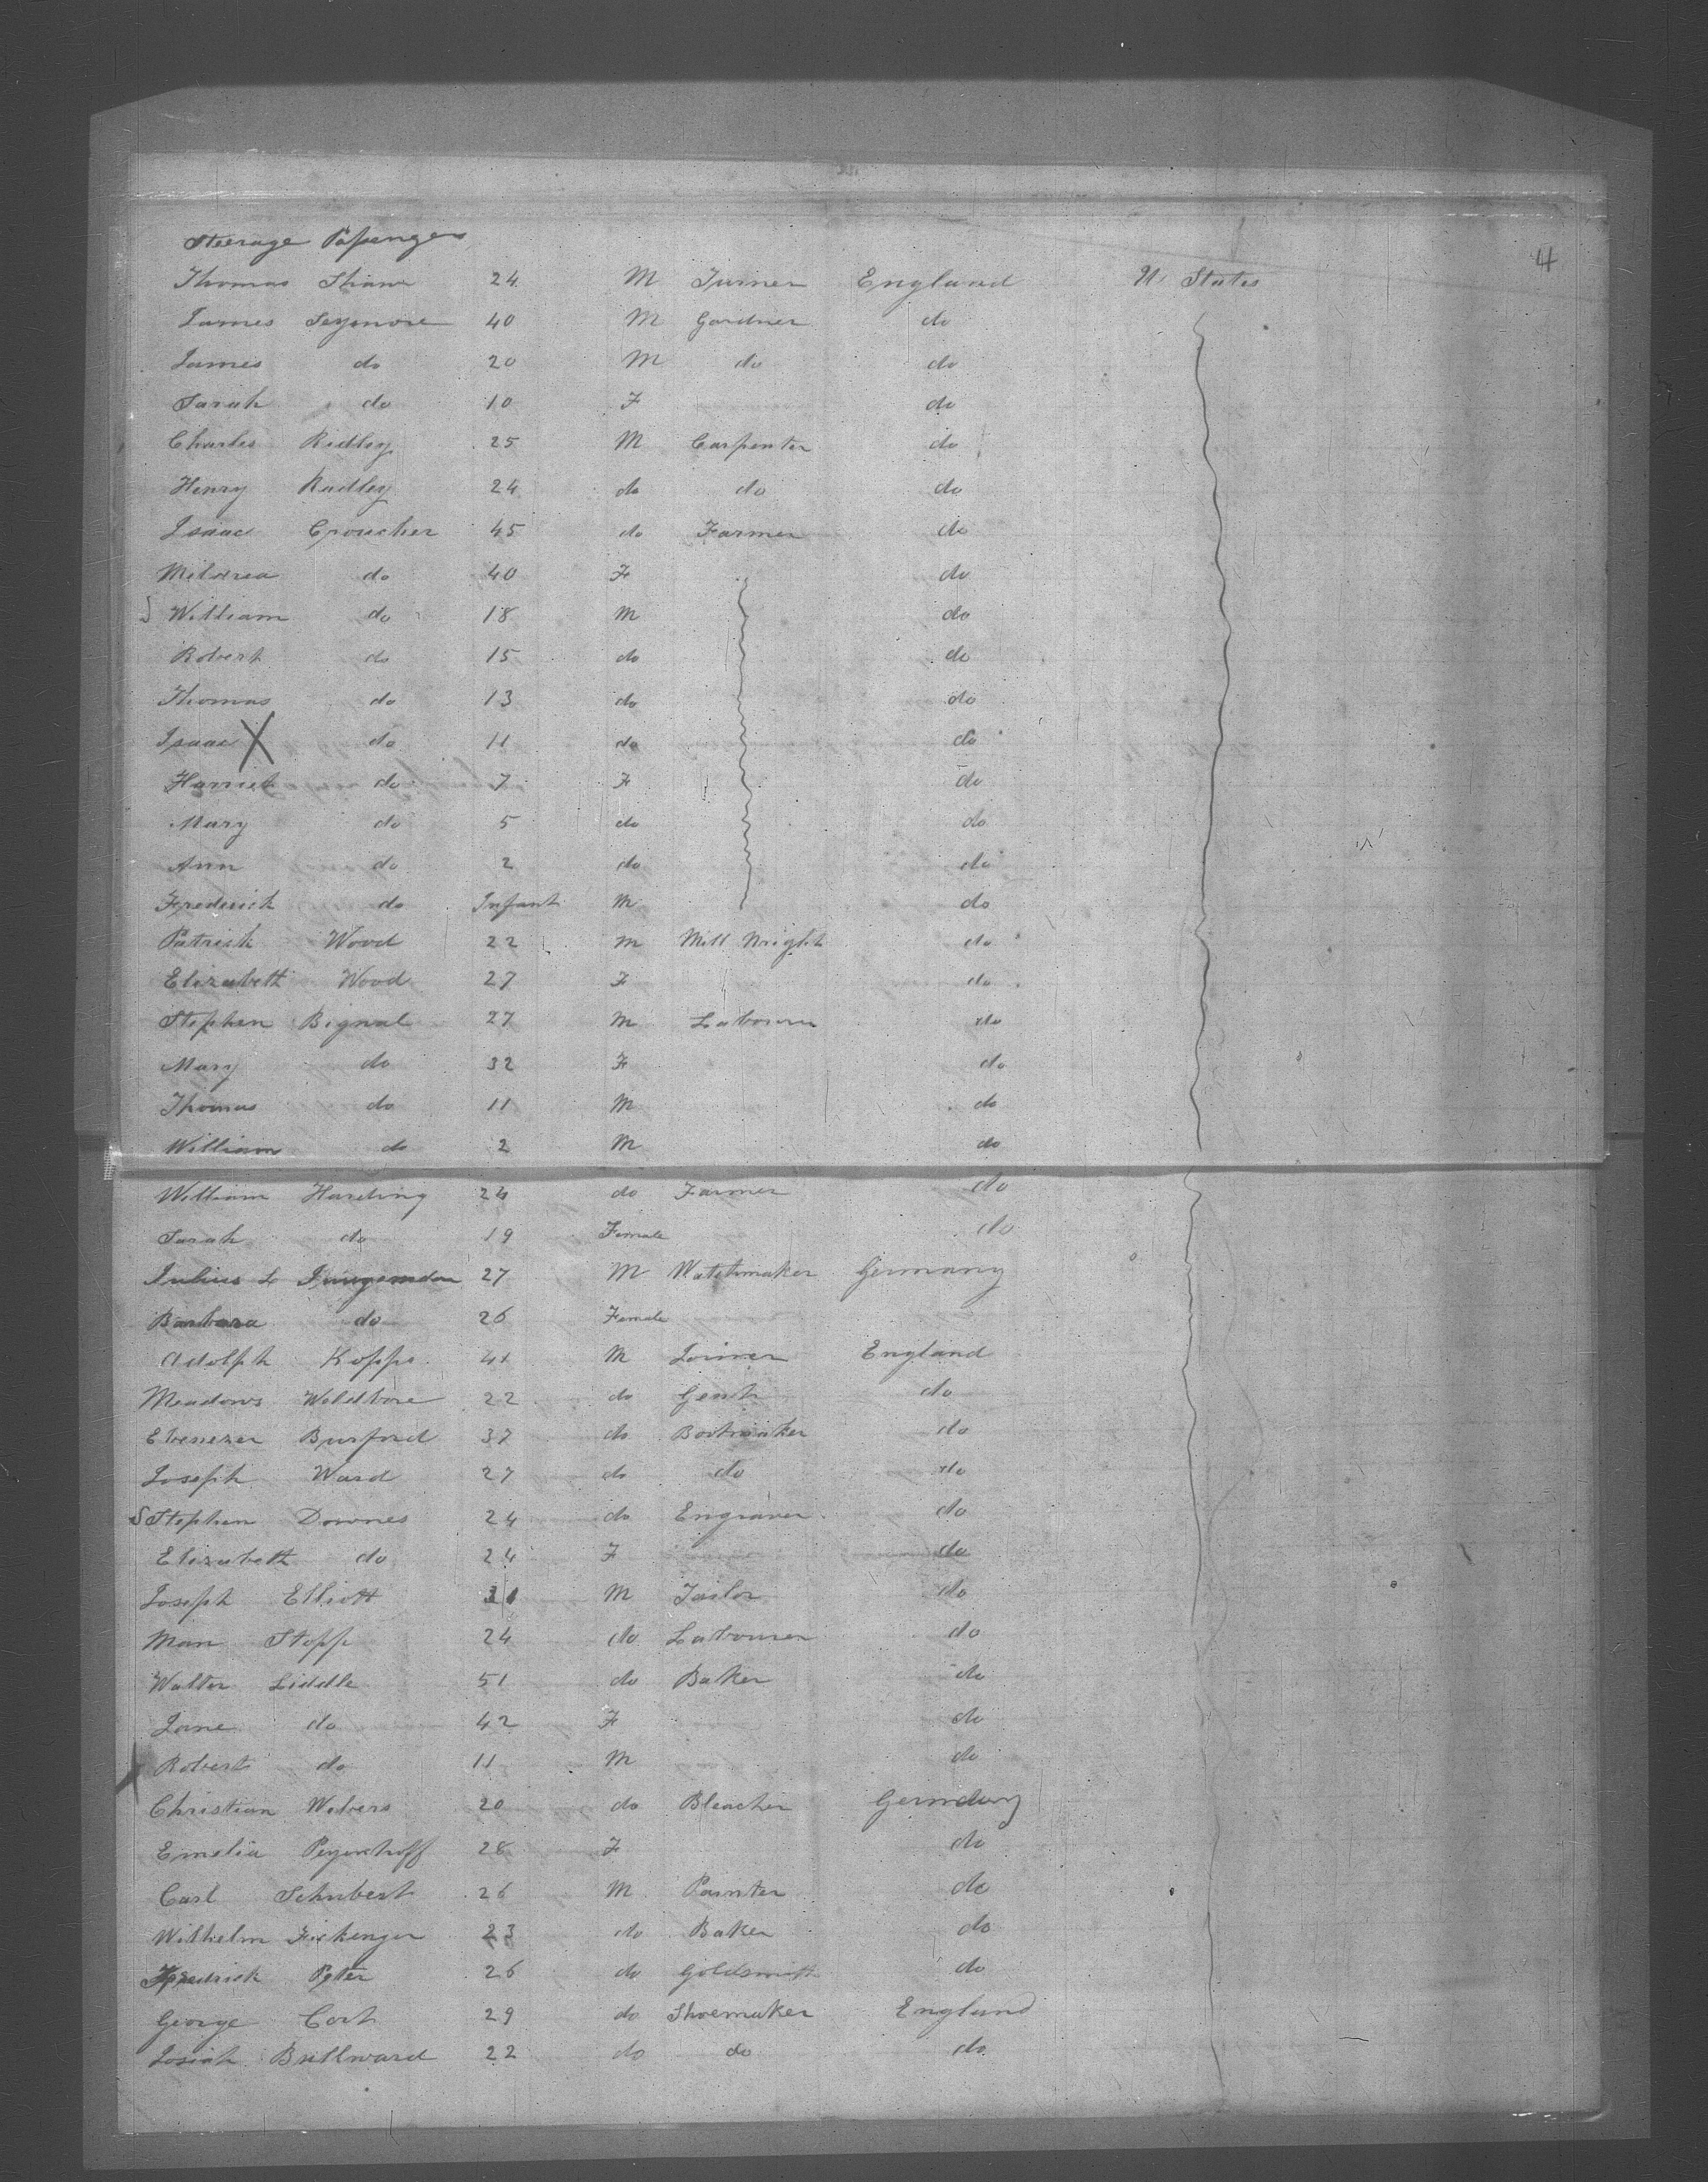 Steerage Passengers
4
Thomas Shaw 24 M Turner England U. States
James Seymore 40 M Gardner do
James do 20 M do do
Sarah do 10 F do
Charles Ridley 25 M Carpenter do
Henry Radley 24 do do do
Isaac Croucher 45 do Farmer do
Mildrea do 40 F do
William do 18 M do
Robert do 15 do do
Thomas do 13 do do
Isaac X do 11 do do
Harriet do 7 F do
Mary do 5 do do
Ann do 2 do do
Frederick do Infant M do
Patrick Wood 22 M Mill Wright do
Elizabeth Wood 27 F do
Stephen Bignal 27 M Labourer do
Mary do 32 F do
Thomas do 11 M do
William do 2 M do
William Harding 24 do Farmer do
Sarah do 19 Female do
Julius 27 M Watchmaker Germany
Barbara do 26 Female
Adolph Kopps 41 M Joiner England
Meadows Weldbore 22 do Gent do
Ebenezer Burford 37 do Bootmaker do
Joseph Ward 27 do do do
S Stephen Downes 24 do Engraver do
Elizabeth do 24 F do
Joseph Elliott M Tailor do
Man Stopp 24 do Labourer do
Walter Liddle 51 do Baker do
Jane do 42 F do
X Robert do 11 M do
Christian Webers 20 do Bleacher Germany
Emelia 28 F do
Carl Schubert 26 M Painter do
Wilhelm 23 do Baker do
Fredrick Peter 26 do Goldsmith do
George Cort 29 do Shoemaker England
Josiah Bullward 22 do do do